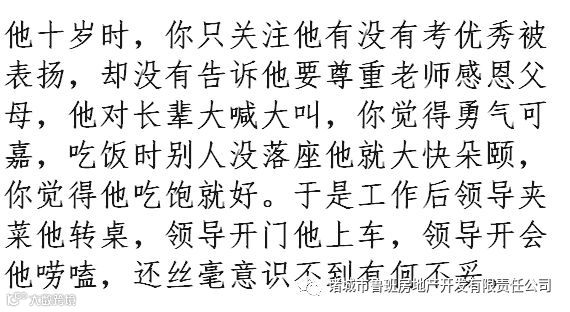 他十岁时，你只关注他有没有考优秀被
表扬，却没有告诉他要尊重老师感恩父
母，他对长辈大喊大叫，你觉得勇气可
嘉，吃饭时别人没落座他就大快朵颐，
你觉得他吃饱就好。于是工作后领导夹
菜他转桌，领导开门他上车，领导开会
他唠嗑，还丝毫意识不到有何不妥
诸城市鲁班房地产开发有限责任公司